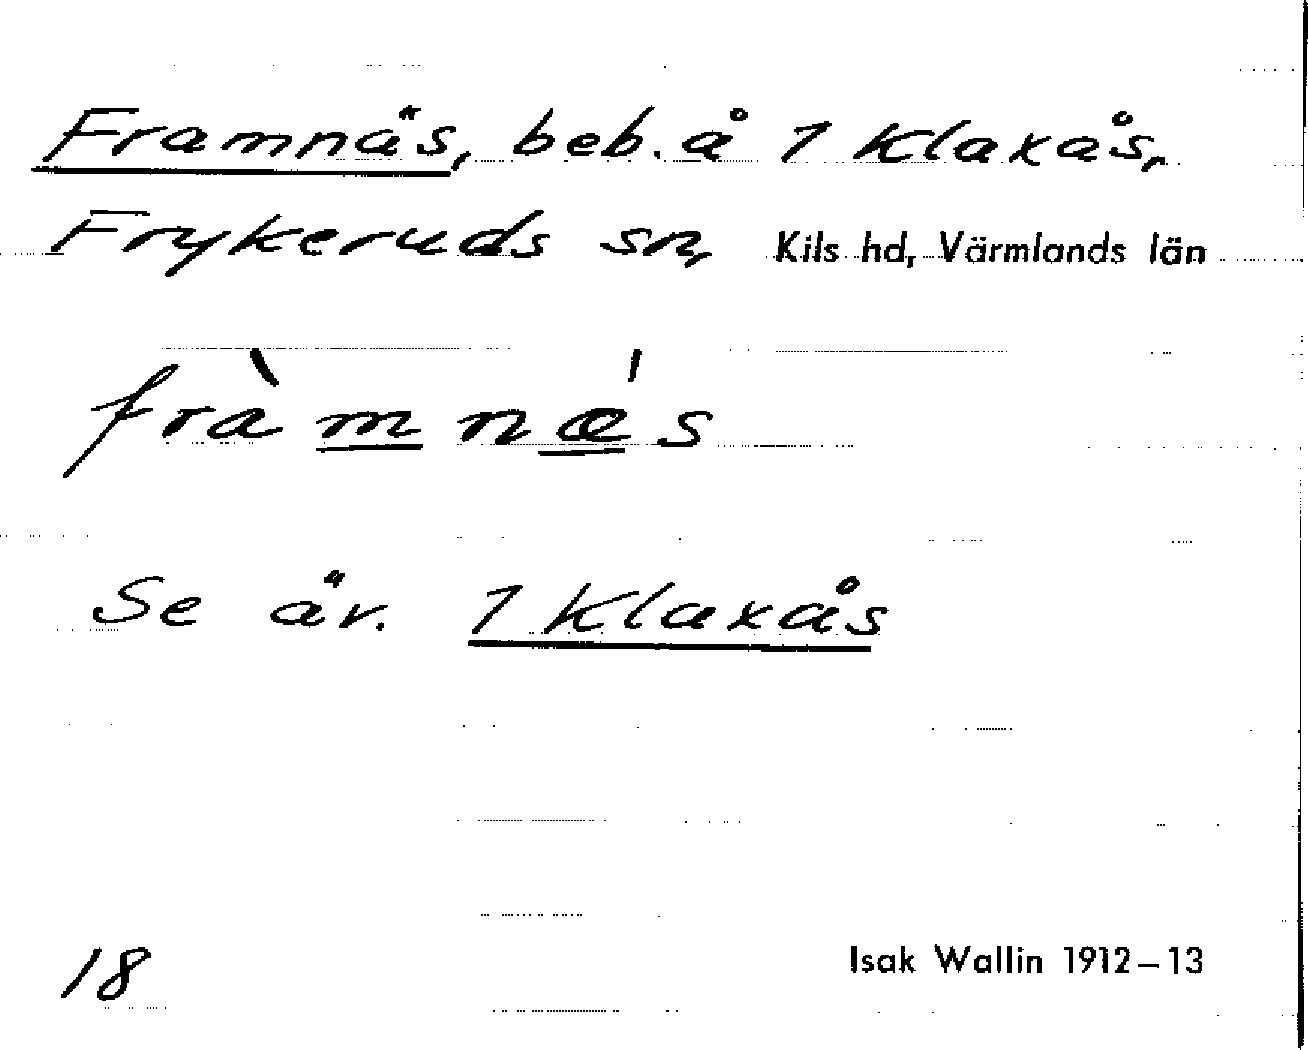 Framnäs, beb. å 1 Klaxås,
Frykeruds sn, Kils hd, Värmlands län
fràmnǽs
Se äv. 1 Klaxås
18
Isak Wallin 1912–13